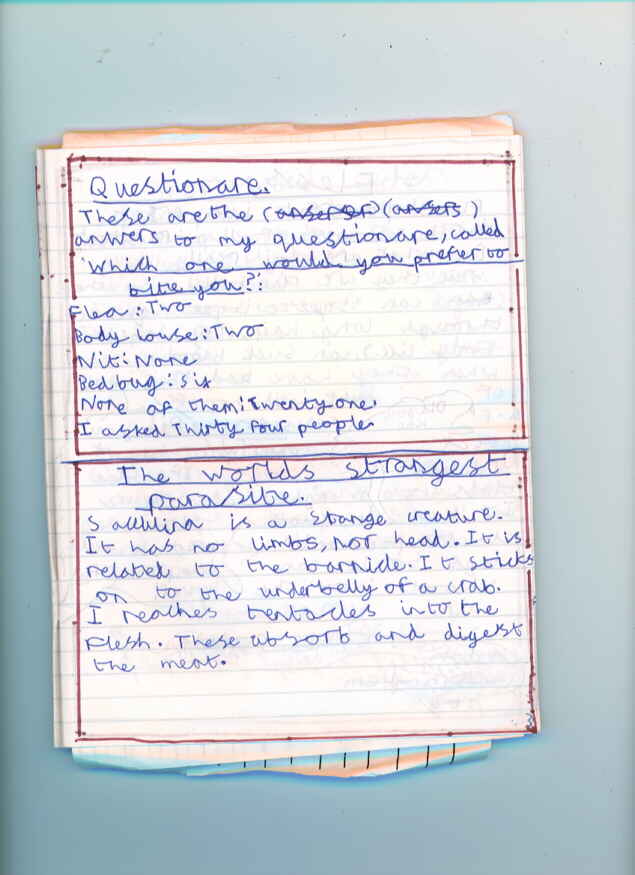 Questionare.
These are the (anserser) (ansers)
anwers to my questionare, called
'Which one would you prefer to
bite you?':
Flea: Two
Body louse: Two
Nit: None
Bedbug: Six
None of them: Twenty one.
I asked Thirty Four people.
The worlds strangest
parasite.
Sacculina is a stange creature.
It has no limbs, nor head. It is
related to the barnicle. It sticks
on to the underbelly of a crab.
I reaches tentacles into the
flesh. These absorb and digest
the meat.